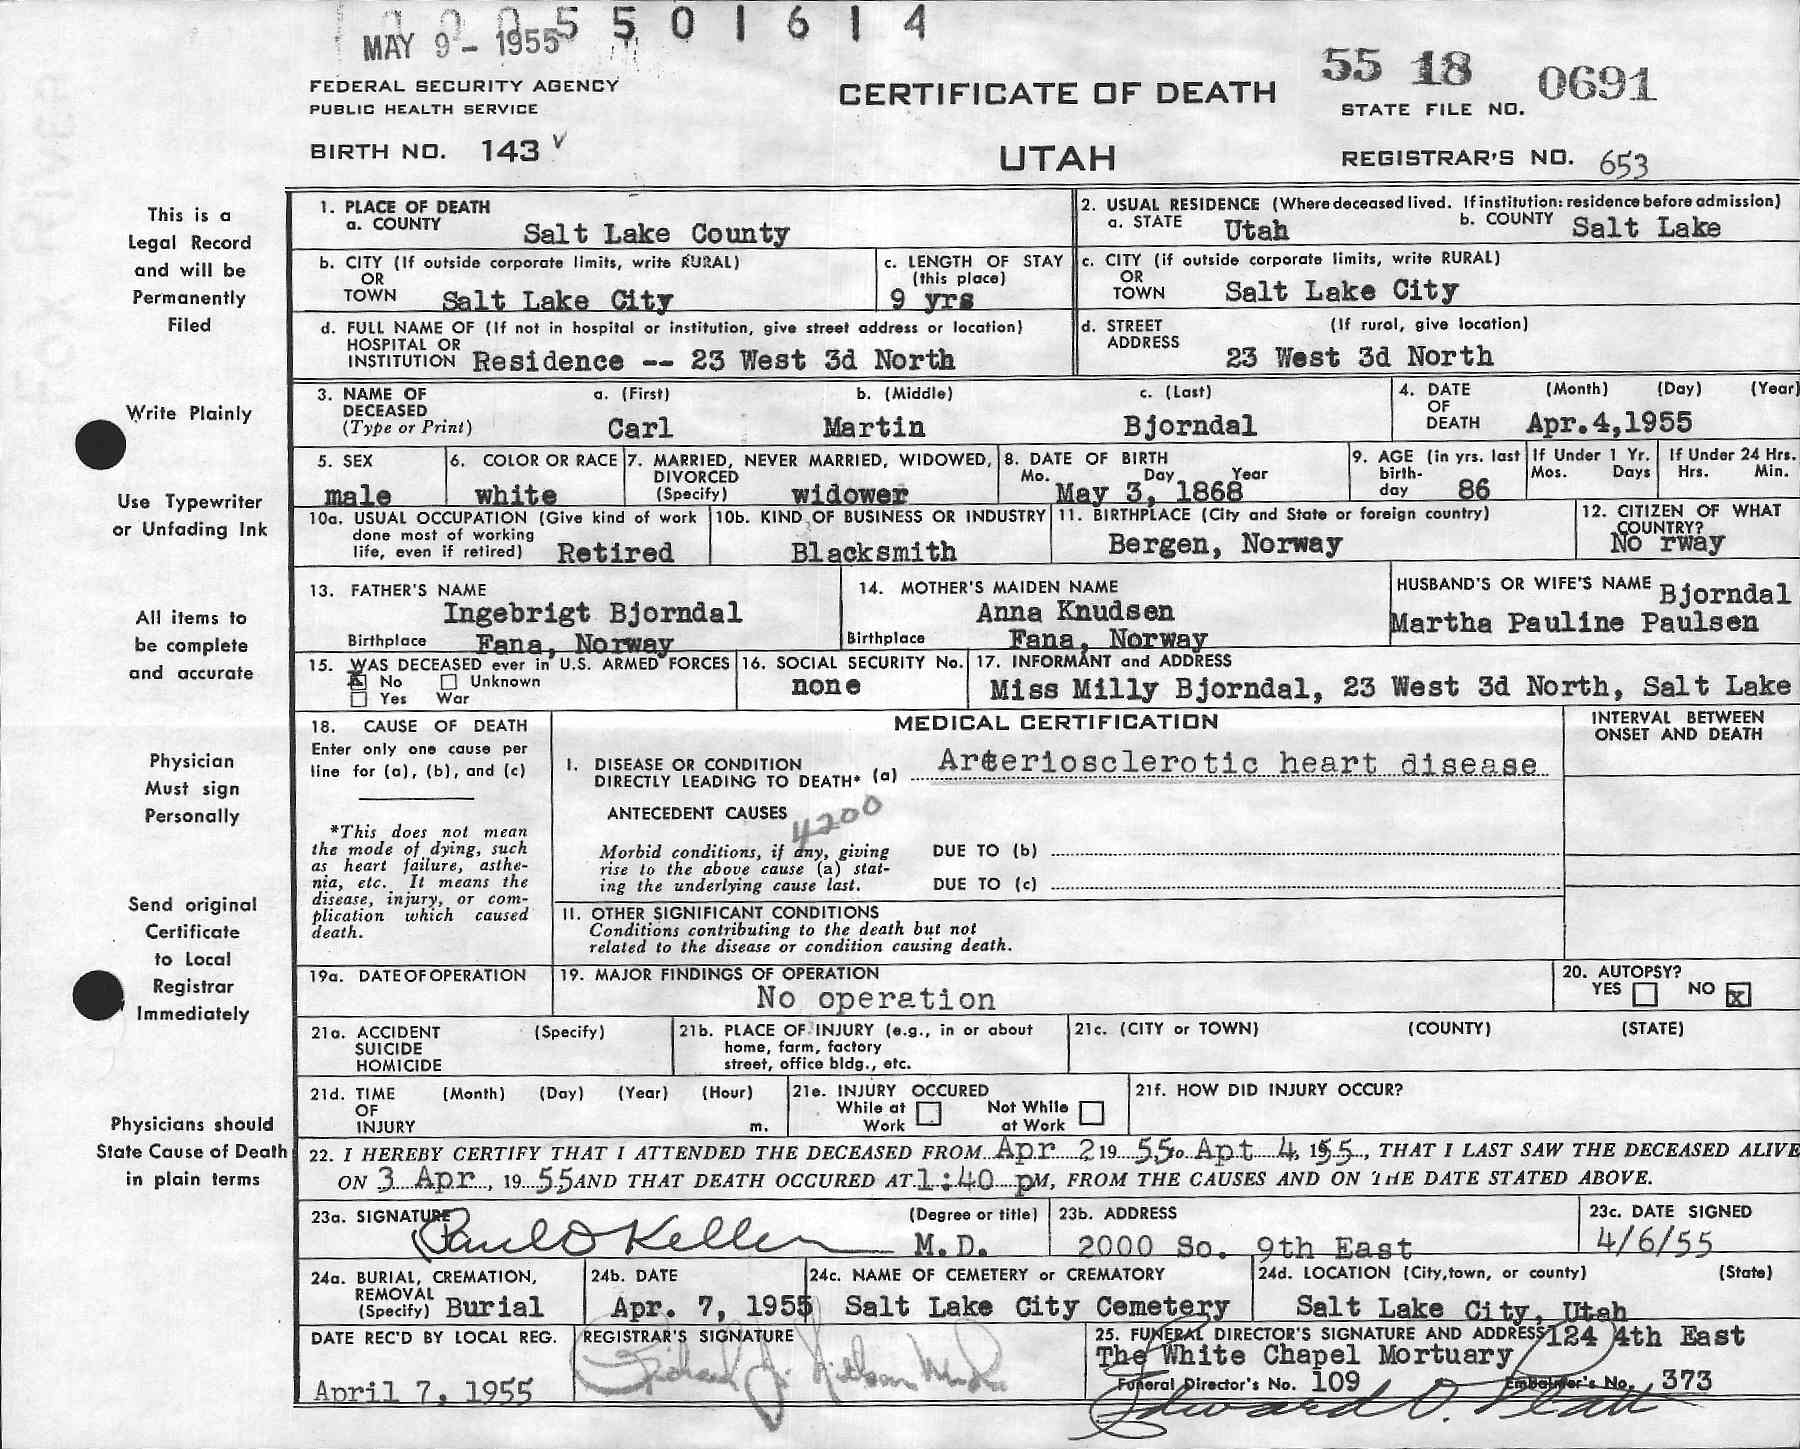 5501614
MAY 9 - 1955
55 18 0691
FEDERAL SECURITY AGENCY
PUBLIC HEALTH SERVICE
CERTIFICATE OF DEATH
STATE FILE NO.
BIRTH NO. 143
UTAH
REGISTRAR'S NO. 653
This is a
Legal Record
and will be
Permanently
Filed
Write Plainly
Use Typewriter
or Unfading Ink
All items to
be complete
and accurate
Physician
Must sign
Personally
Send original
Certificate
to Local
Registrar
Immediately
Physicians should
State Cause of Death
in plain terms
1. PLACE OF DEATH
a. COUNTY Salt Lake County
2. USUAL RESIDENCE (Where deceased lived. If institution: residence before admission)
a. STATE Utah b. COUNTY Salt Lake
b. CITY (If outside corporate limits, write RURAL)
OR
TOWN Salt Lake City
c. LENGTH OF STAY
(this place)
9 yrs
c. CITY (if outside corporate limits, write RURAL)
OR
TOWN Salt Lake City
d. FULL NAME OF (If not in hospital or institution, give street address or location)
HOSPITAL OR
INSTITUTION Residence -- 23 West 3d North
d. STREET (If rural, give location)
ADDRESS
23 West 3d North
3. NAME OF a. (First) b. (Middle) c. (Last)
DECEASED
(Type or Print) Carl Martin Bjorndal
4. DATE (Month) (Day) (Year)
OF
DEATH Apr.4,1955
5. SEX
male
6. COLOR OR RACE
white
7. MARRIED, NEVER MARRIED, WIDOWED,
DIVORCED
(Specify) widower
8. DATE OF BIRTH
Mo. Day Year
May 3, 1868
9. AGE (in yrs. last
birth-
day 86
If Under 1 Yr.
Mos. Days
If Under 24 Hrs.
Hrs. Min.
10a. USUAL OCCUPATION (Give kind of work
done most of working
life, even if retired) Retired
10b. KIND OF BUSINESS OR INDUSTRY
Blacksmith
11. BIRTHPLACE (City and State or foreign country)
Bergen, Norway
12. CITIZEN OF WHAT
COUNTRY?
No rway
13. FATHER'S NAME
Ingebrigt Bjorndal
Birthplace Fana, Norway
14. MOTHER'S MAIDEN NAME
Anna Knudsen
Birthplace Fana, Norway
HUSBAND'S OR WIFE'S NAME Bjorndal
Martha Pauline Paulsen
15. WAS DECEASED ever in U.S. ARMED FORCES
x No Unknown
Yes War
16. SOCIAL SECURITY No.
none
17. INFORMANT and ADDRESS
Miss Milly Bjorndal, 23 West 3d North, Salt Lake
18. CAUSE OF DEATH
Enter only one cause per
line for (a), (b), and (c)
*This does not mean
the mode of dying, such
as heart failure, asthe-
nia, etc. It means the
disease, injury, or com-
plication which caused
death.
MEDICAL CERTIFICATION
INTERVAL BETWEEN
ONSET AND DEATH
I. DISEASE OR CONDITION
DIRECTLY LEADING TO DEATH* (a) Arteriosclerotic heart disease
ANTECEDENT CAUSES
4200
Morbid conditions, if any, giving
rise to the above cause (a) stat-
ing the underlying cause last.
DUE TO (b)
DUE TO (c)
II. OTHER SIGNIFICANT CONDITIONS
Conditions contributing to the death but not
related to the disease or condition causing death.
19a. DATE OF OPERATION
19. MAJOR FINDINGS OF OPERATION
No operation
20. AUTOPSY?
YES NO x
21a. ACCIDENT (Specify)
SUICIDE
HOMICIDE
21b. PLACE OF INJURY (e.g., in or about
home, farm, factory
street, office bldg., etc.
21c. (CITY or TOWN) (COUNTY) (STATE)
21d. TIME (Month) (Day) (Year) (Hour)
OF
INJURY m.
21e. INJURY OCCURED
While at Not While
Work at Work
21f. HOW DID INJURY OCCUR?
22. I HEREBY CERTIFY THAT I ATTENDED THE DECEASED FROM Apr 2 19 55 to Apt 4, 1955, THAT I LAST SAW THE DECEASED ALIVE
ON 3 Apr, 19 55 AND THAT DEATH OCCURED AT 1:40 pM, FROM THE CAUSES AND ON THE DATE STATED ABOVE.
23a. SIGNATURE (Degree or title)
Paul O Keller M.D.
23b. ADDRESS
2000 So. 9th East
23c. DATE SIGNED
4/6/55
24a. BURIAL, CREMATION,
REMOVAL
(Specify) Burial
24b. DATE
Apr. 7, 1955
24c. NAME OF CEMETERY or CREMATORY
Salt Lake City Cemetery
24d. LOCATION (City, town, or county) (State)
Salt Lake City, Utah
DATE REC'D BY LOCAL REG.
April 7, 1955
REGISTRAR'S SIGNATURE
25. FUNERAL DIRECTOR'S SIGNATURE AND ADDRESS 124 4th East
The White Chapel Mortuary
Funeral Director's No. 109 Embalmer's No. 373
Edward O.